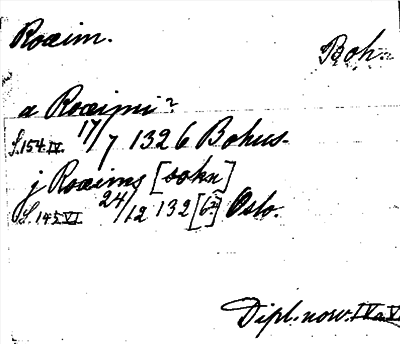 Roæim.
Boh.
a Roæimi?
S. 154. IV. 17/7 1326 Bohus.
j Roæims [sokn]
S. 145. VI. 24/12 132[6?] Oslo.
Dipl. norv. IV a. V.